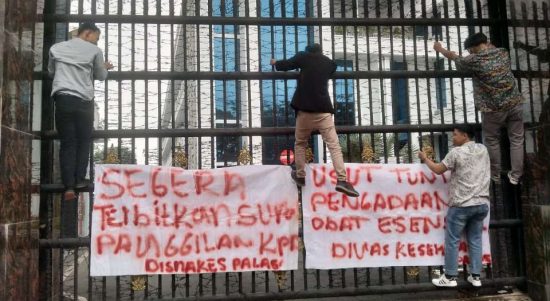 SEGERA
TerbitKan SURA
PANGGILAN KPA
DISNAKES PALAS!
USUT TUN
PENGADAAN
OBAT ESENS
DINAS KESEH